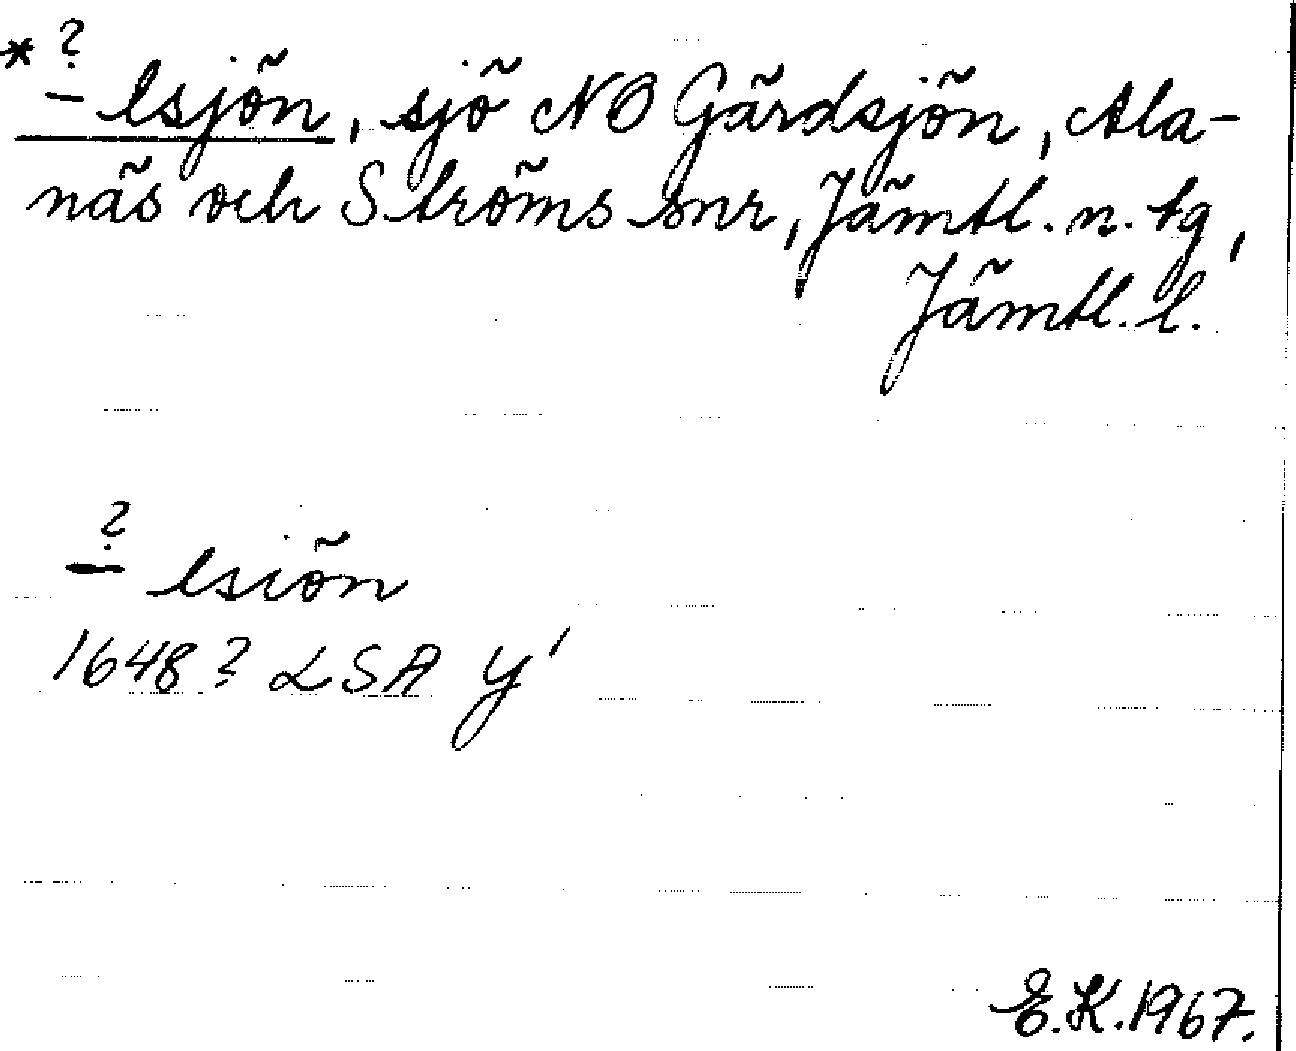 *?
- lsjön, sjö NO Gärdsjön, Ala-
näs och Ströms snr, Jämtl. n. tg,
Jämtl. l.
?
- lsiön
1648? LSA Y'
E.K. 1967.